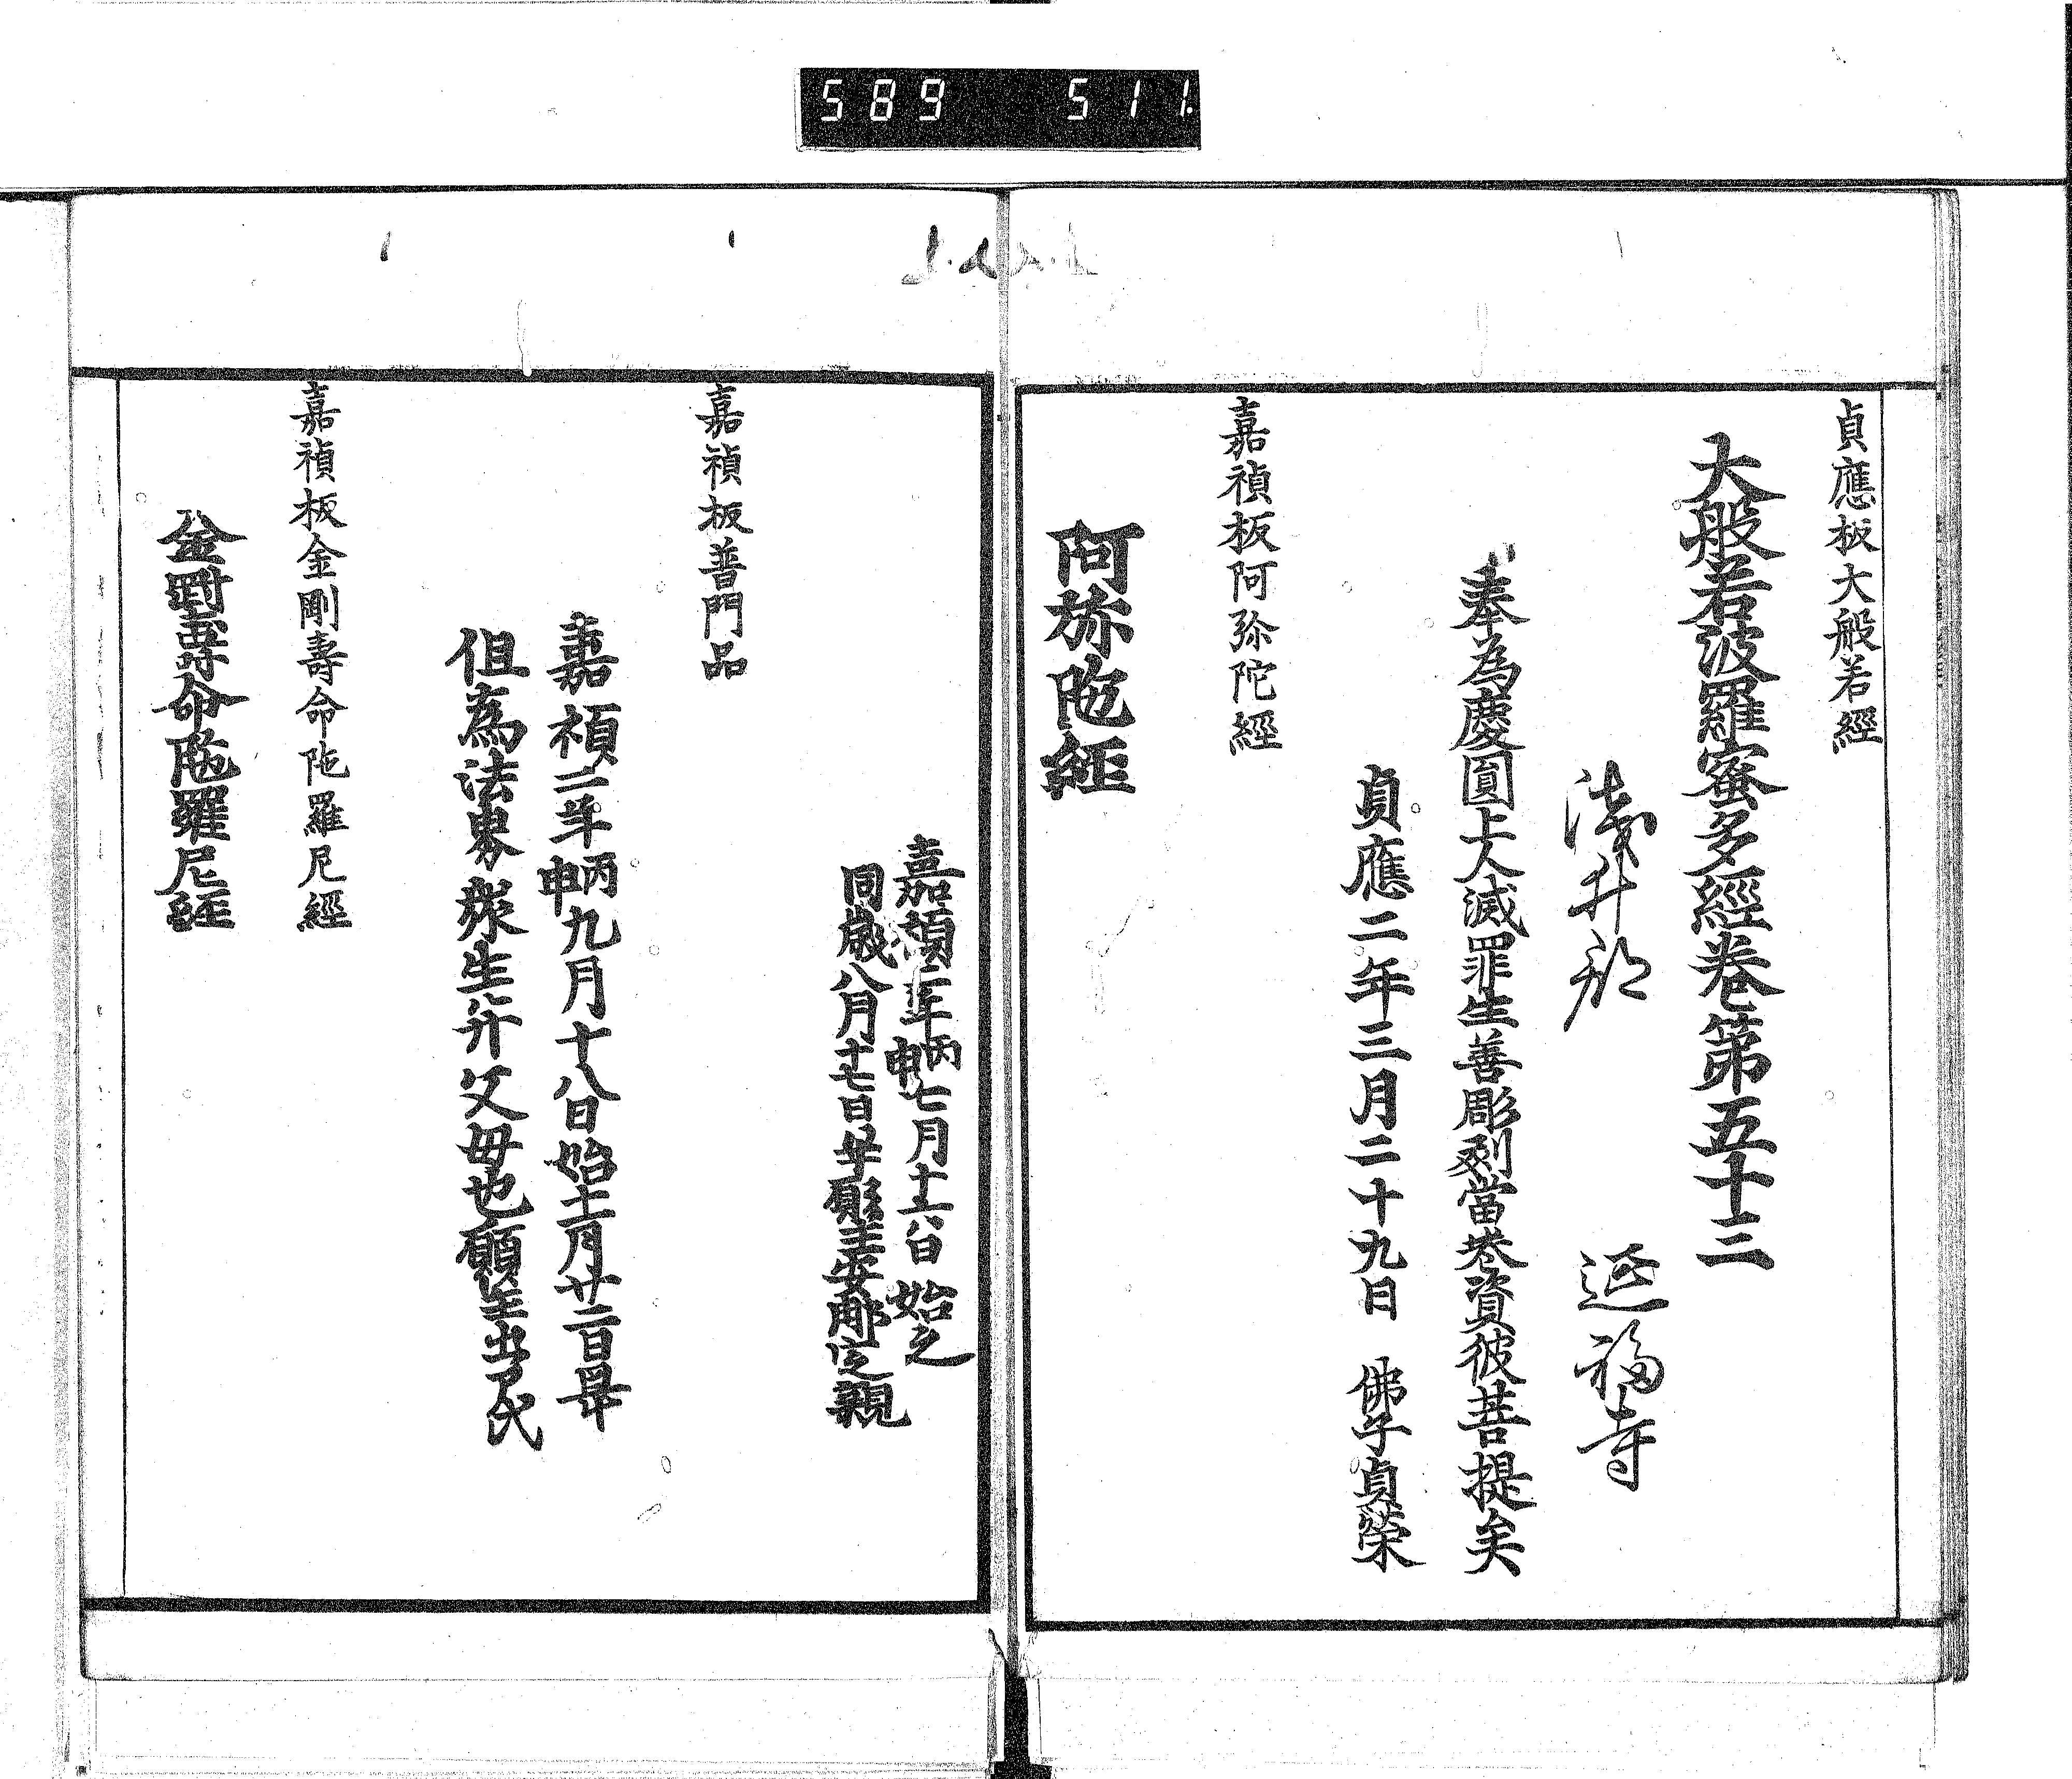 589 511
貞應板大般若經
大般若波羅蜜多經卷第五十三
淺井郡 延福寺
奉為慶圓上人滅罪生善彫列當卷資彼菩提矣
貞應二年三月二十九日 佛子貞榮
嘉禎板阿弥陀經
阿弥陁經
嘉禎二年丙申七月十六日始之
同歲八月十七日畢願主安那定親
嘉禎板普門品
嘉禎二年丙申九月十八日始十一月廿二日畢
但為法界衆生并父母也願主
嘉禎板金剛壽命陁羅尼經
金剛壽命陁羅尼經